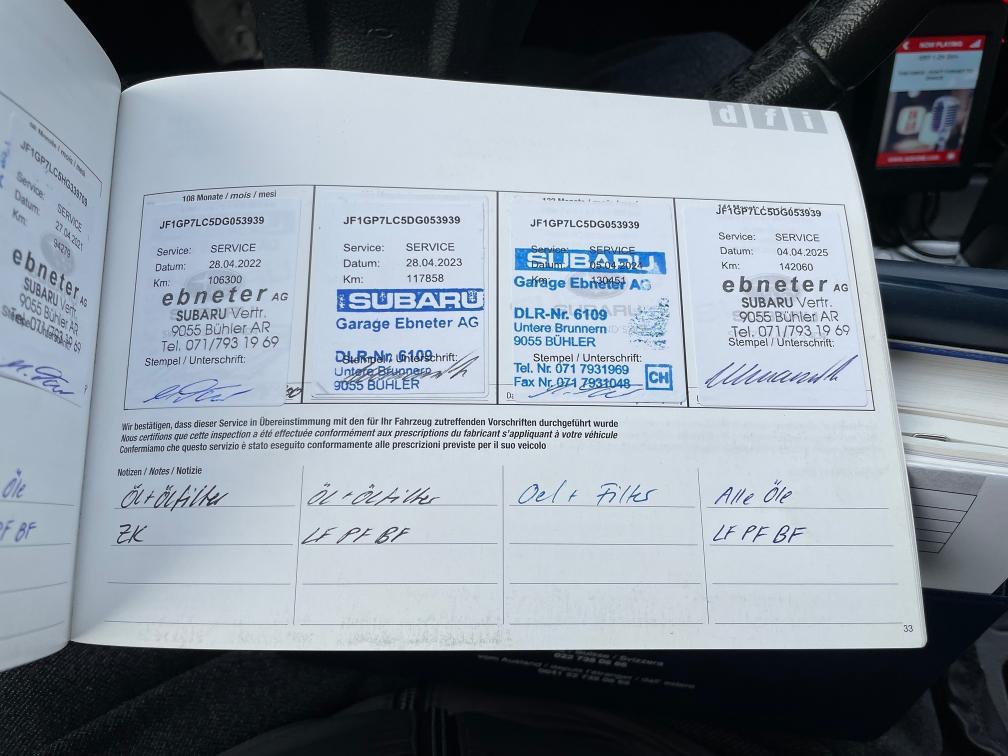 JF1GP7LC5HG338769
SERVICE
Datum: 27.04.2021
Km: 94279
ebneter AG
SUBARU Vertr.
9055 Bühler AR
Öle
PF BF
dfi
108 Monate / mois / mesi
JF1GP7LC5DG053939
Service: SERVICE
Datum: 28.04.2022
Km: 106300
ebneter AG
SUBARU Vertr.
9055 Bühler AR
Tel. 071/793 19 69
Stempel / Unterschrift:
JF1GP7LC5DG053939
Service: SERVICE
Datum: 28.04.2023
Km: 117858
SUBARU
Garage Ebneter AG
DLR-Nr. 6109
Stempel / Unterschrift:
Untere Brunnern
9055 BÜHLER
JF1GP7LC5DG053939
Service: SERVICE
SUBARU
Datum: 05.04.2024
Km: 130451
Garage Ebneter AG
DLR-Nr. 6109
Untere Brunnern
9055 BÜHLER
Stempel / Unterschrift:
Tel. Nr. 071 7931969
Fax Nr. 071 7931048
CH
JF1GP7LC5DG053939
Service: SERVICE
Datum: 04.04.2025
Km: 142060
ebneter AG
SUBARU Vertr.
9055 Bühler AR
Tel. 071/793 19 69
Stempel / Unterschrift:
Wir bestätigen, dass dieser Service in Übereinstimmung mit den für Ihr Fahrzeug zutreffenden Vorschriften durchgeführt wurde
Nous certifions que cette inspection a été effectuée conformément aux prescriptions du fabricant s'appliquant à votre véhicule
Confermiamo che questo servizio è stato eseguito conformamente alle prescrizioni previste per il suo veicolo
Notizen / Notes / Notizie
Öl + Ölfilter
ZK
Öl + Ölfilter
LF PF BF
Oel + Filter
Alle Öle
LF PF BF
33
NOW PLAYING